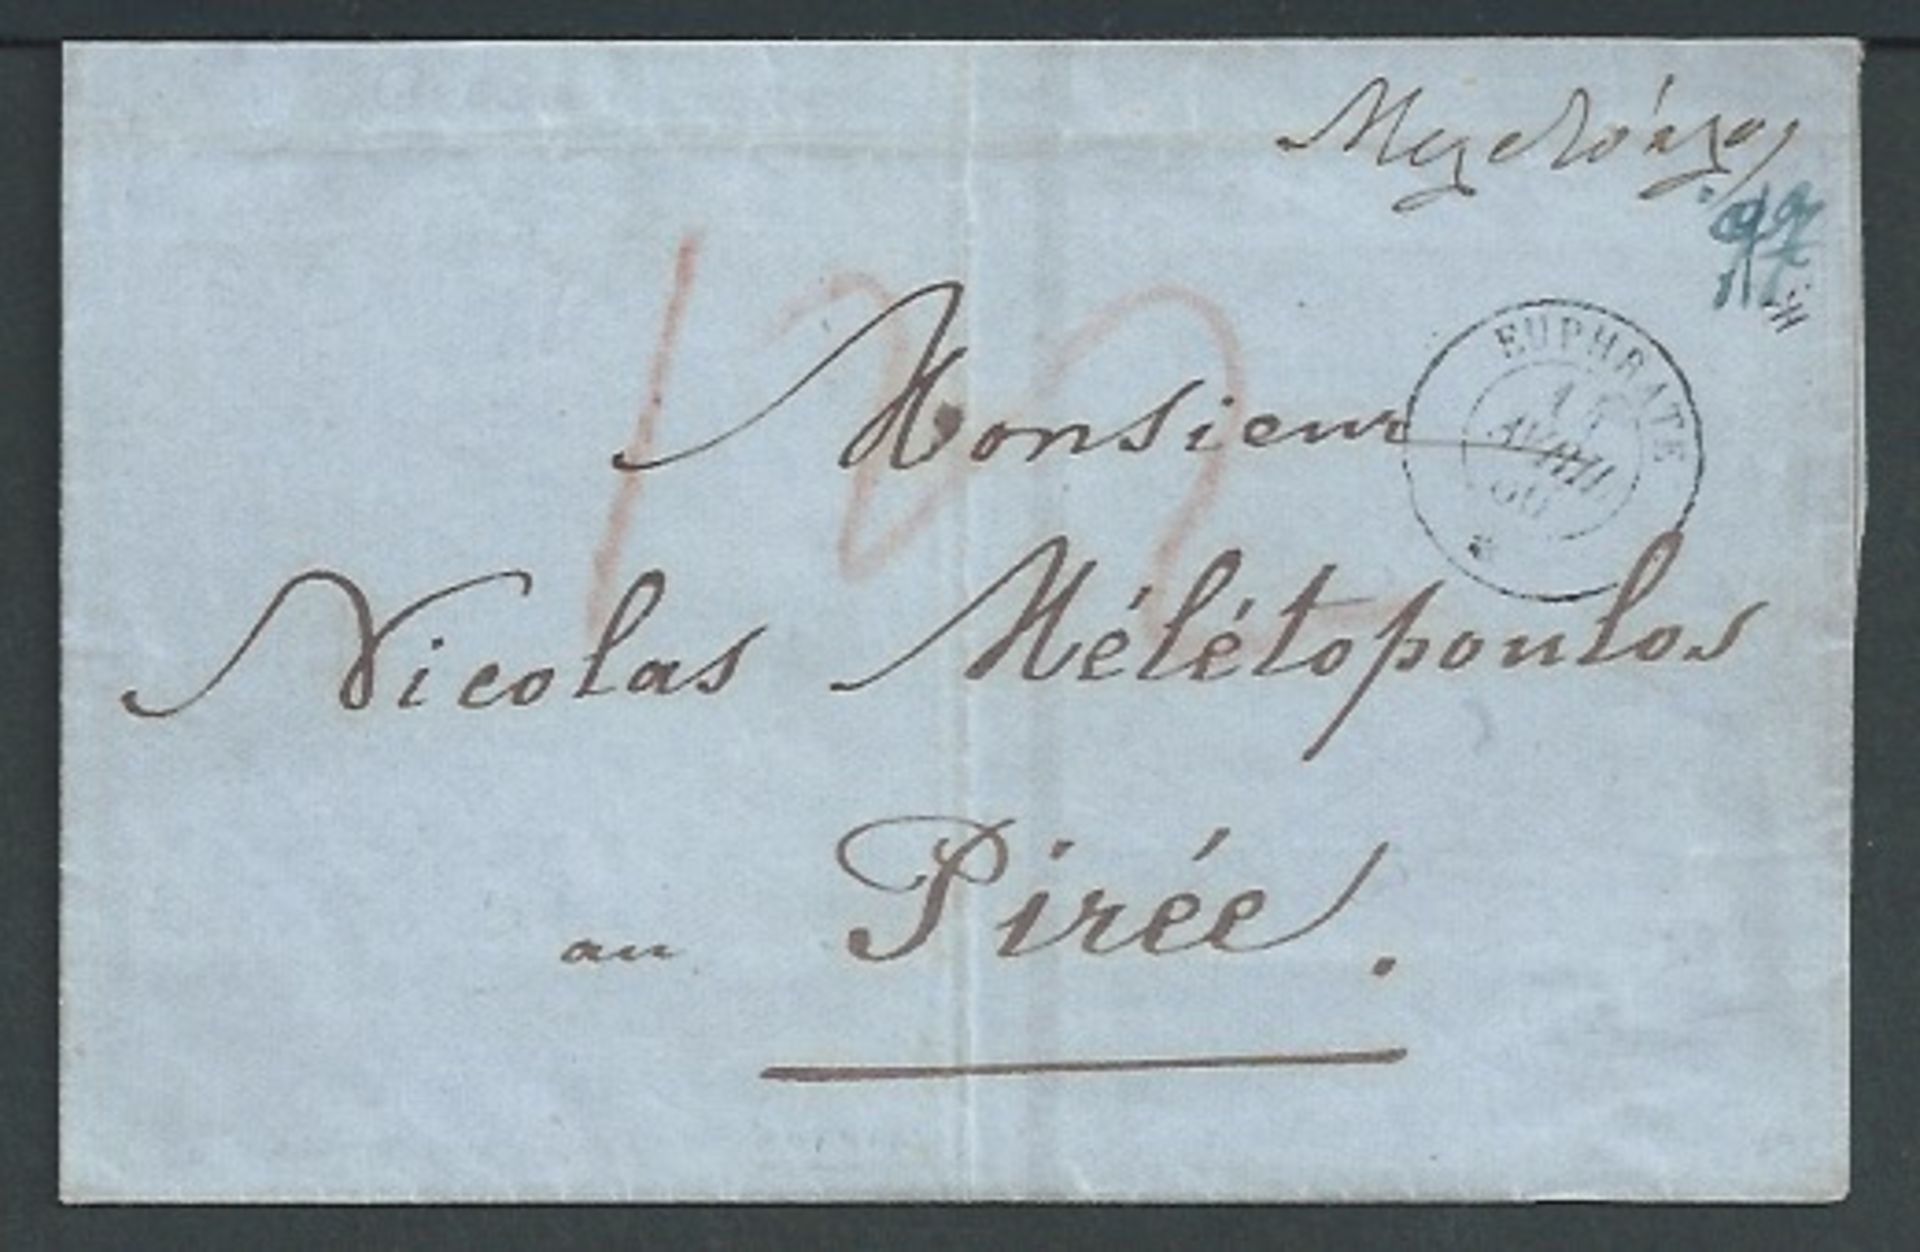 EUPHRATE
15
AVRIL
60
Monsieur
Nicolas Mélétopoulos
au Pirée.